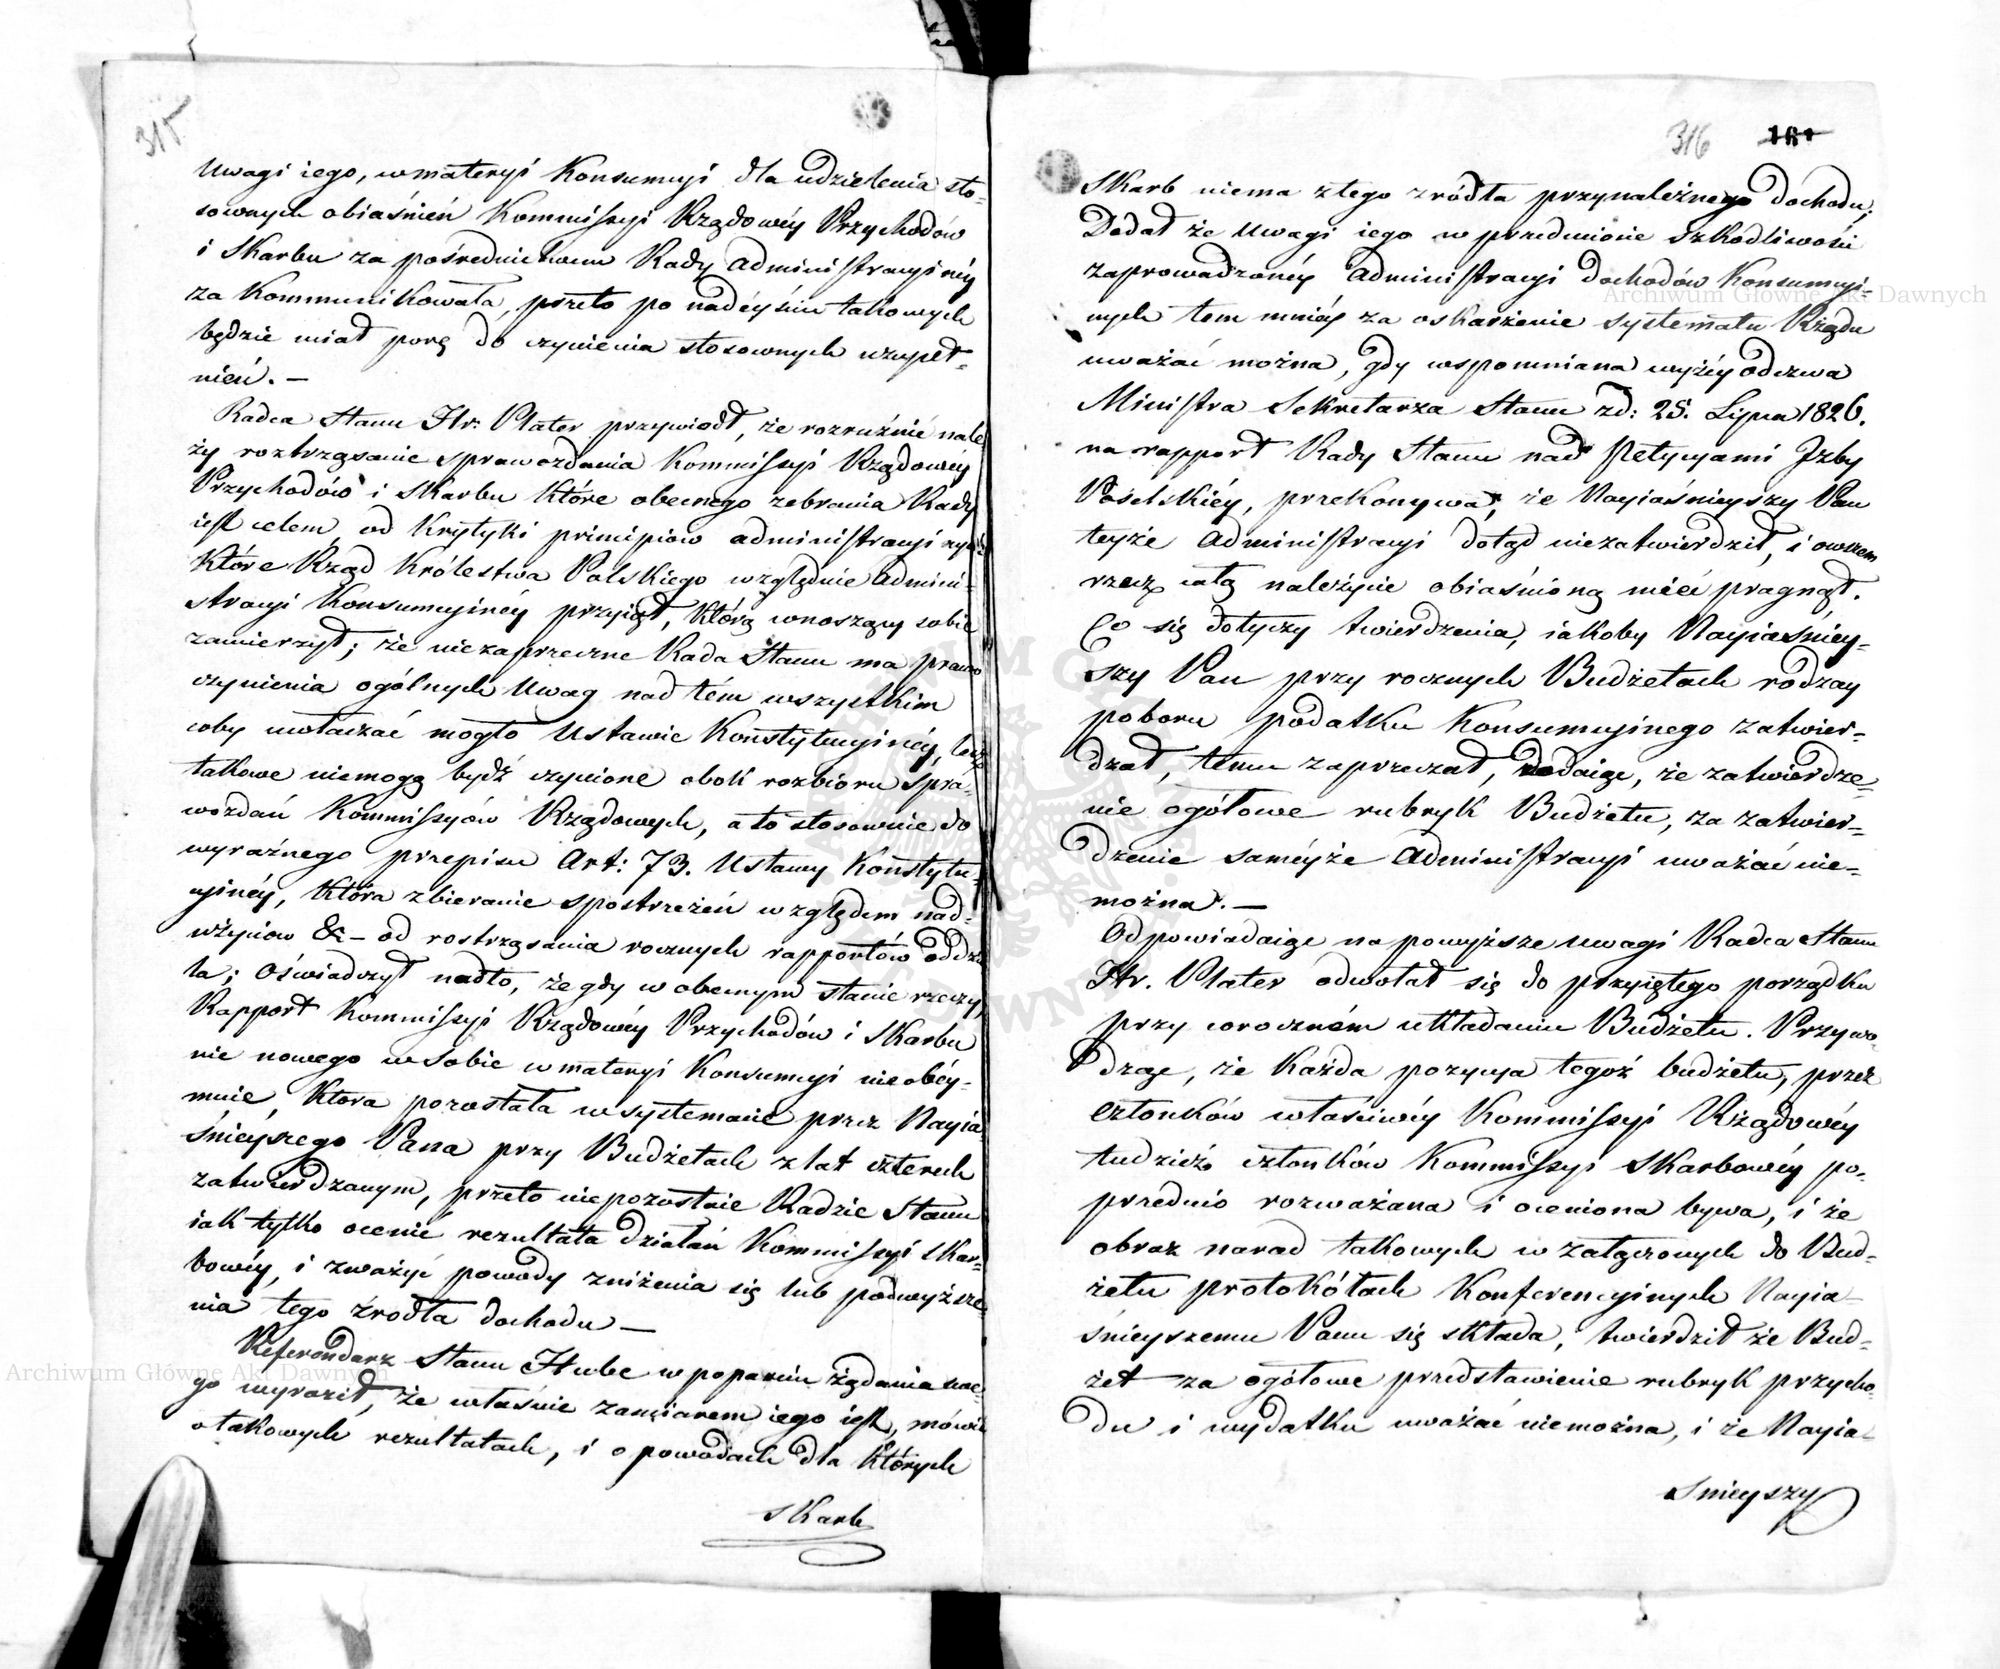 315
Uwagi iego, w materyi Konsumcyi dla udzielenia sto-
sownych obiaśnień Kommissyi Rządowéy Przychodów
i Skarbu za pośrednictwem Rady Administracyinéy
za Kommunikowała, przeto po nadéyściu takowych
będzie miał porę do czynienia stosownych uzupeł-
nień. —
Radca Stanu Hr: Plater przywiódł, że rozruźnić nale
ży roztrząsanie sprawozdania Kommissyi Rządowéy
Przychodów i Skarbu które obecnego zebrania Rady
iest celem, od Krytyki principiow administracyinych
Które Rząd Królestwa Polskiego względnie Admini-
stracyi Konsumcyinéy przyiął, Którą wnoszący sobie
zamierzył; że niezaprzeczne Rada Stanu ma prawo
czynienia ogólnych Uwag nad tém wszystkim
coby uwłaczać mogło Ustawie Konstytucyinéy, lecz
takowe niemogą bydź czynione obok rozbioru Spra-
wozdań Kommissyów Rządowych, a to stosownie do
wyraźnego przepisu Art: 73. Ustawy Konstytu-
cyinéy, Która zbieranie spostrzeżeń względem nad-
użyciow &c – od rostrząsania rocznych rapportów oddzie
la; Oświadczył nadto, że gdy w obecnym stanie rzeczy,
Rapport Kommissyi Rządowéy Przychodów i Skarbu
nic nowego w sobie w materyi Konsumcyi nie obéy-
muie, Ktora pozostała w systemacie przez Nayia-
śnieyszego Pana przy Budżetach z lat czterech
zatwierdzanym, przeto nie pozostaie Radzie Stanu
iak tylko ocenić rezultata działań Kommissyi Skar-
bowéy, i zważyć powody zniżenia się lub podwyższe-
nia tego źrodła dochodu —
Referendarz Stanu Hube w poparciu żądania swe-
go wyraził, że właśnie zamiarem iego iest, mówić
o takowych rezultatach, i o powodach dla Których
Skarb
316 161
Skarb niema z tego zródła przynależnego dochodu;
Dodał że Uwagi iego w przedmiocie szkodliwości
zaprowadzonéy Administracyi Dochodów Konsumcyi-
nych tem mniéy za oskarżenie systematu Rządu
uważać można, gdy wspomniana wyżéy odezwa
Ministra Sekretarza Stanu zd: 25. Lipca 1826.
na rapport Rady Stanu nad Petycyami Izby
Poselskiéy, przekonywa, że Nayiaśnieyszy Pan
teyże Administracyi dotąd niezatwierdził, i owszem
rzecz całą należycie obiaśnioną mieć pragnął.
Co się dotyczy twierdzenia, iakoby Nayiaśniey-
szy Pan przy rocznych Budżetach rodzay
poboru podatku Konsumcyinego zatwier-
dzał, temu zaprzeczał, dodaiąc, że zatwierdze-
nie ogółowe rubryk Budżetu, za zatwier-
dzenie saméyże Administracyi uważać nie-
można. —
Odpowiadaiąc na powyższe uwagi Radca Stanu
Hr. Plater odwołał się do przyiętego porządku
przy coroczném układaniu Budżetu. Przywo-
dząc, że Każda pozycya tegoż budżetu, przez
członków właściwéy Kommissyi Rządowéy
tudzież członków Kommissyi Skarbowéy po-
przednio rozważana i oceniona bywa, i że
obraz narad takowych w załączonych do Bud-
żetu protokółach Konferencyinych Nayia-
śnieyszemu Panu się składa, twierdził że Bud-
żet za ogółowe przedstawienie rubryk przycho-
du i wydatku uważać niemożna, i że Nayia-
snieyszy
Archiwum Główne Akt Dawnych
Archiwum Główne Akt Dawnych